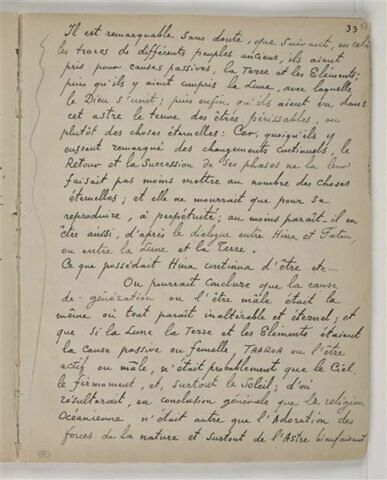 33
Il est remarquable sans doute, que suivant, en cela
les traces de différents peuples anciens, ils aient
pris pour causes passives, la Terre et les Eléments;
puis qu'ils y aient compris la Lune, avec laquelle
le Dieu s'unit; puis enfin, qu'ils aient vu dans
cet astre le terme des êtres périssables, ou
plutôt des choses éternelles: Car, quoiqu'ils y
eussent remarqué des changements continuels, le
Retour et la Succession de ses phases ne la leur
faisait pas moins mettre au nombre des choses
éternelles; et elle ne mourrait que pour se
reproduire, à perpétuité; au moins paraît-il en
être ainsi, d'après le dialogue entre Hina et Fatou,
ou entre la Lune et la Terre.
Ce que possédait Hina continua d'être etc...
On pourrait conclure que la cause
de génération ou l'être mâle était la
même où tout paraît inaltérable et éternel; et
que si la Lune la Terre et les Eléments étaient
la cause passive ou femelle TAAROA ou l'être
actif ou mâle, n'était probablement que le Ciel,
le firmament, et, surtout le Soleil; d'où
résulterait, en conclusion générale que la religion
Océanienne n'était autre que l'Adoration des
forces de la nature et surtout de l'Astre bienfaisant